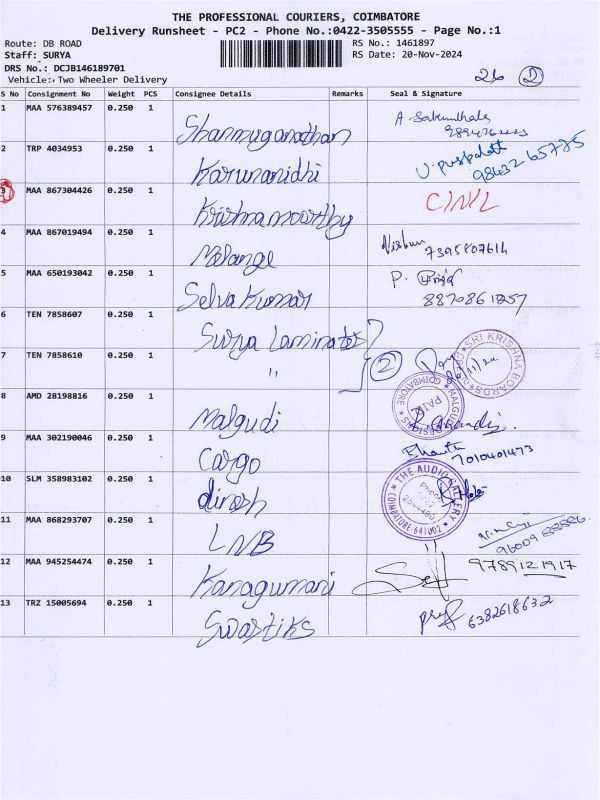 THE PROFESSIONAL COURIERS, COIMBATORE
Delivery Runsheet - PC2 - Phone No.:0422-3505555 - Page No.:1
Route: DB ROAD RS No.: 1461897
Staff: SURYA RS Date: 20-Nov-2024
DRS No.: DCJB146189701
Vehicle: Two Wheeler Delivery 26 2
S No Consignment No Weight PCS Consignee Details Remarks Seal & Signature
1 MAA 576389457 0.250 1 Shanmuganathan A. Sakunthala
2 TRP 4034953 0.250 1 Karunanidhi 98432 65775
3 MAA 867304426 0.250 1 Krishnamoorthy
4 MAA 867019494 0.250 1 Melange 7395807614
5 MAA 650193042 0.250 1 Selva Kumar P.
8870861257
6 TEN 7858607 0.250 1 Surya Laminates
7 TEN 7858610 0.250 1 " 2 SRI KRISHNA BOARDS
8 AMD 28198816 0.250 1 Malgudi COIMBATORE
9 MAA 302190046 0.250 1 Cargo 7010401473
10 SLM 358983102 0.250 1 dinesh THE AUDIO GALLERY COIMBATORE-641002
11 MAA 868293707 0.250 1 LNB
12 MAA 945254474 0.250 1 Kanagumani 9789121917
13 TRZ 15005694 0.250 1 Swastiks 6382618632